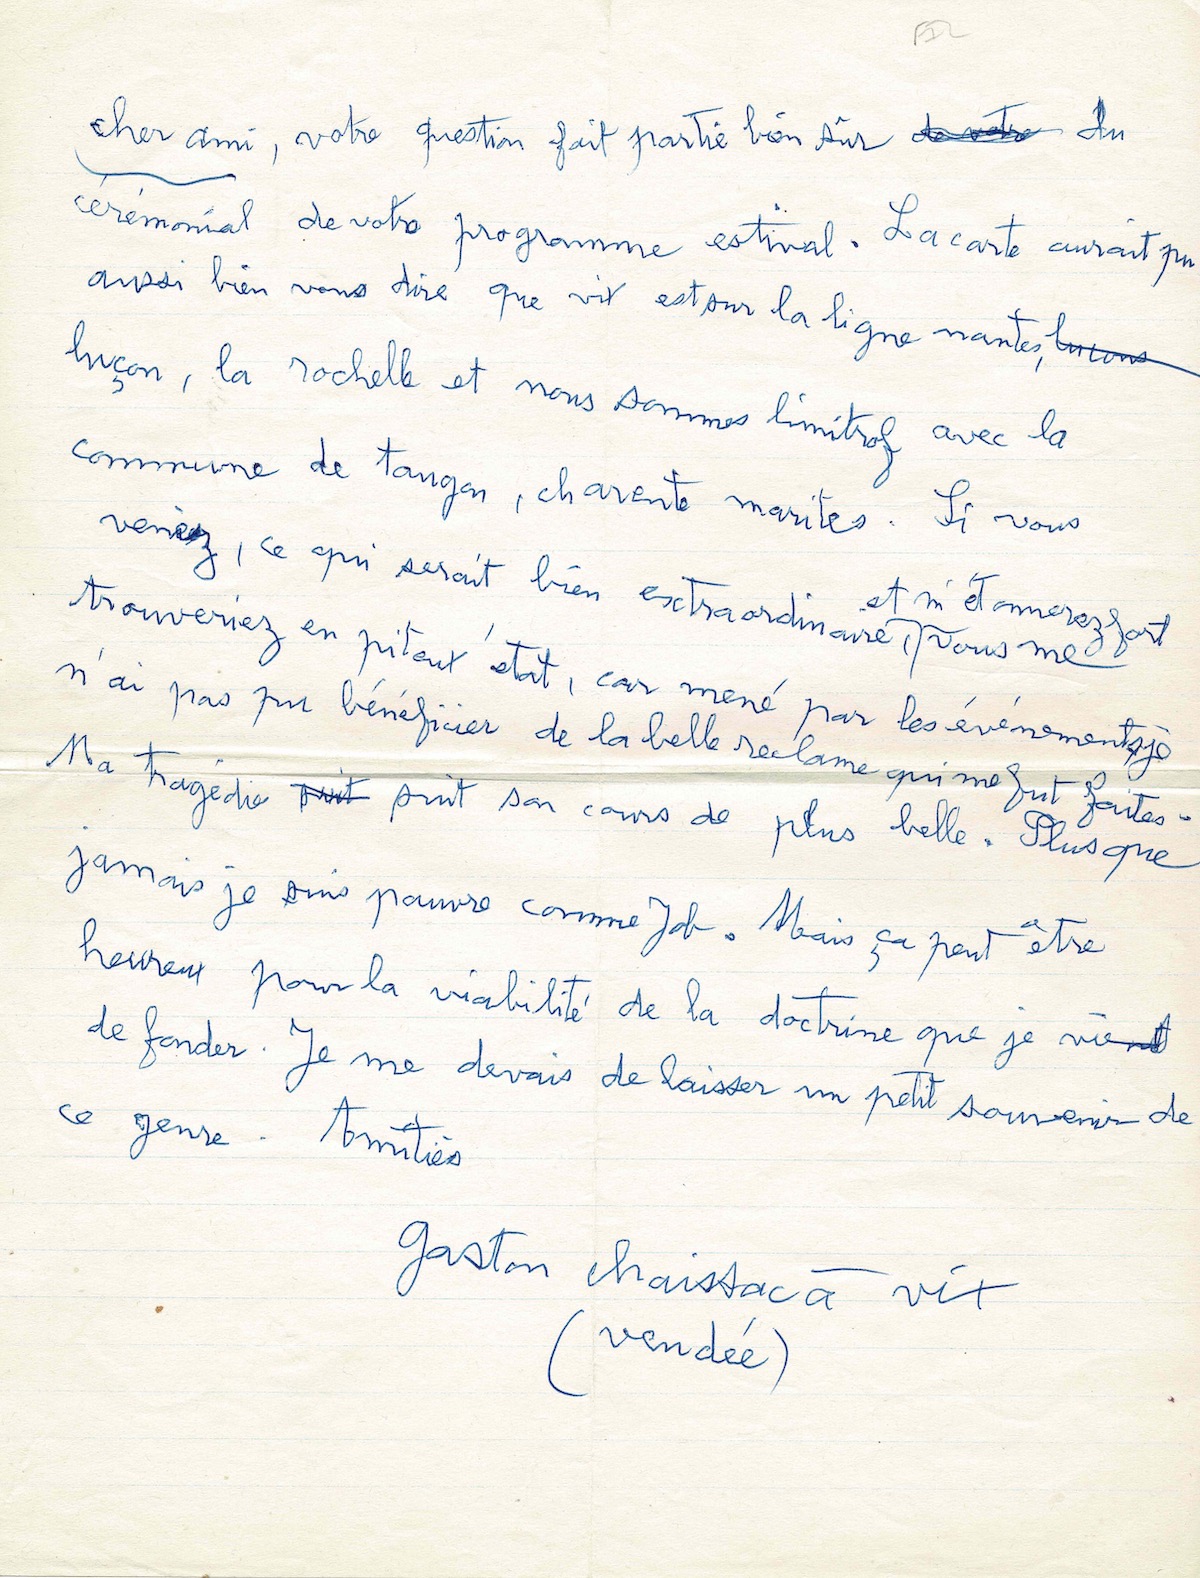 cher ami, votre question fait partie bien sûr de votre du
cérémonial de votre programme estival. La carte aurait pu
aussi bien vous dire que vix est sur la ligne nantes, lucons
luçon, la rochelle et nous sommes limitrof avec la
commune de taugon, charente marites. Si vous
veniez, ce qui serait bien extraordinaire, et m'étonnerez fort
vous me
trouveriez en piteux état, car mené par les événements je
n'ai pas pu bénéficier de la belle reclame qui me fut faites.
Ma tragédie suit suit son cours de plus belle. Plus que
jamais je suis pauvre comme Job. Mais ça peut être
heureux pour la viabilité de la doctrine que je vient
de fonder. Je me devais de laisser un petit souvenir de
ce genre. Amitiés
gaston chaissac à vix
(vendée)